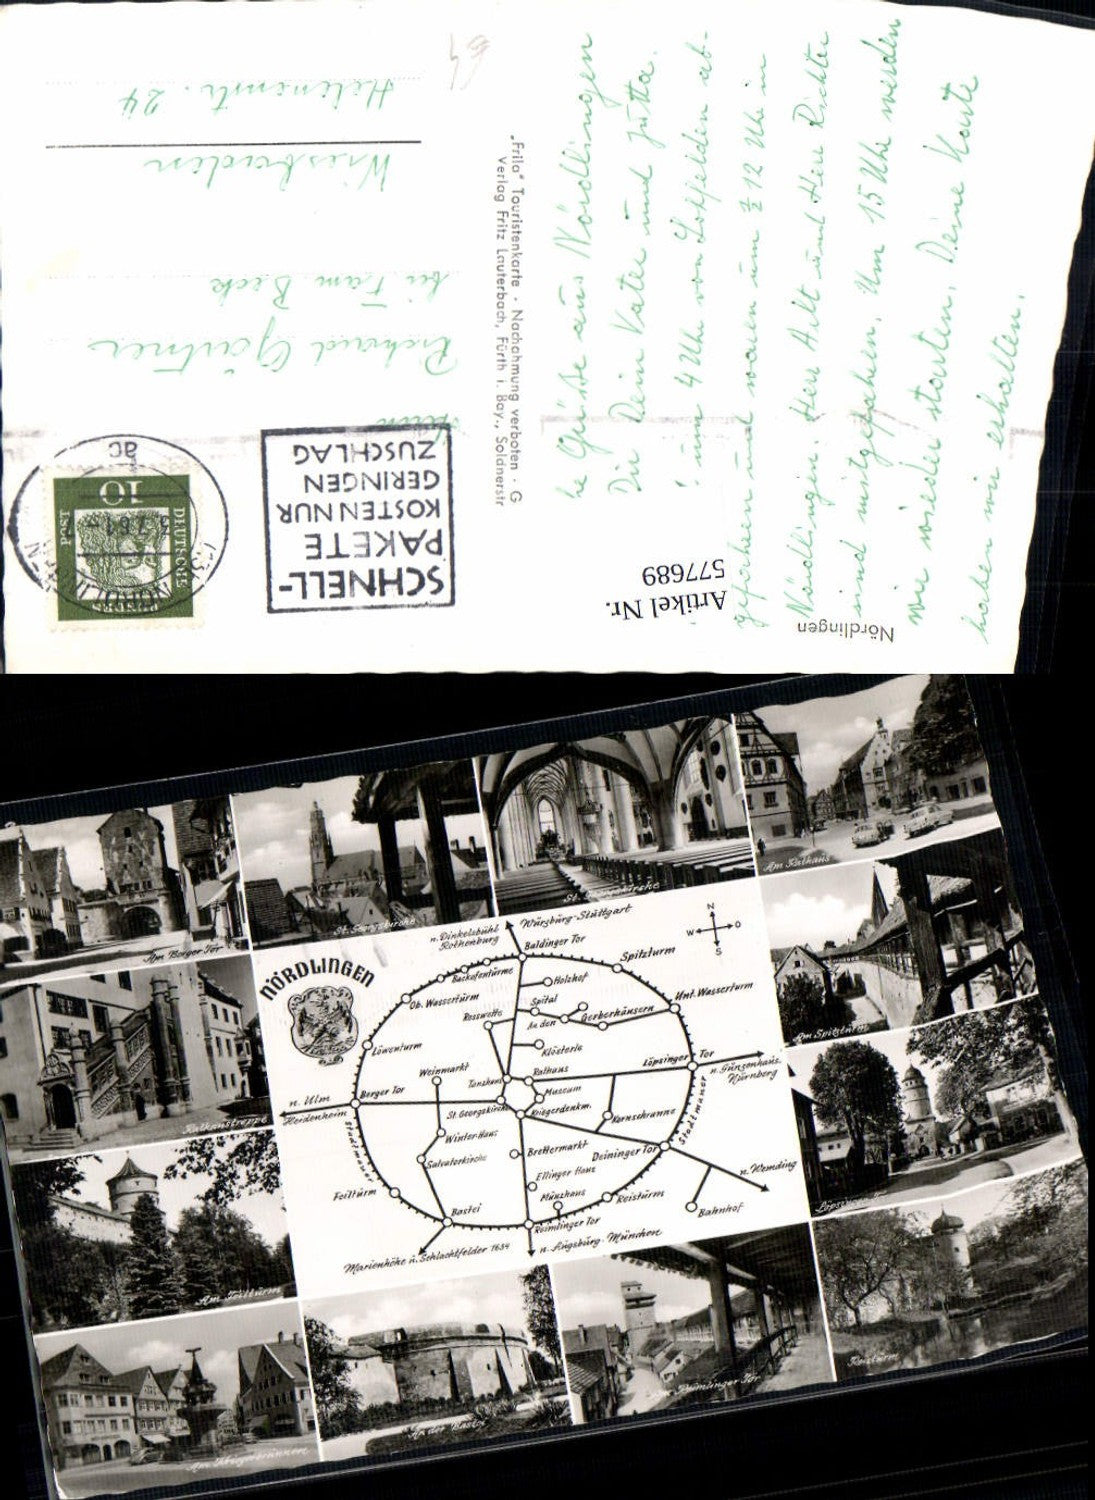 he Grüße aus Nördlingen
Dir Dein Vater und Jutta.
um 4 Uhr von Lohfelden ab-
gefahren und waren um ½ 12 Uhr in
Nördlingen. Herr Arlt und Herr Richter
sind mitgefahren. Um 15 Uhr werden
wir wieder starten. Deine Karte
haben wir erhalten.
Nördlingen
Artikel Nr.
577689
„Frila“ Touristenkarte · Nachahmung verboten · G
Verlag Fritz Lauterbach, Fürth i. Bay., Soldnerstr
SCHNELL-
PAKETE
KOSTEN NUR
GERINGEN
ZUSCHLAG
DEUTSCHE
BUNDES
POST
10
NÖRDLINGEN
ac
Richard Gärtner
bei Fam. Beck
Wiesbaden
Helenenstr. 24
Am Berger Tor
St. Georgskirche
St. Georgskirche
Am Rathaus
Rathaustreppe
Am Spitzturm
Am Feilturm
Löpsinger Tor
Am Kriegerbrunnen
An der Bastei
Am Reimlinger Tor
Reisturm
NÖRDLINGEN
n. Dinkelsbühl
Rothenburg
Würzburg-Stuttgart
Baldinger Tor
N
W
O
S
Backofentürme
Spitzturm
Holzhof
Ob. Wasserturm
Spital
Unt. Wasserturm
Rosswette
An den
Gerberhäusern
Löwenturm
Klösterle
Weinmarkt
Löpsinger Tor
n. Gunzenhaus.
Nürnberg
Tanzhaus
Rathaus
Berger Tor
Museum
n. Ulm
Heidenheim
St. Georgskirche
Kriegerdenkm.
Kornschranne
Stadtmauer
Stadtmauer
Winter-Haus
Brettermarkt
Deininger Tor
Salvatorkirche
Ellinger Haus
n. Wemding
Feilturm
Münzhaus
Reisturm
Bahnhof
Bastei
Reimlinger Tor
Marienhöhe u. Schlachtfelder 1634
n. Augsburg · München